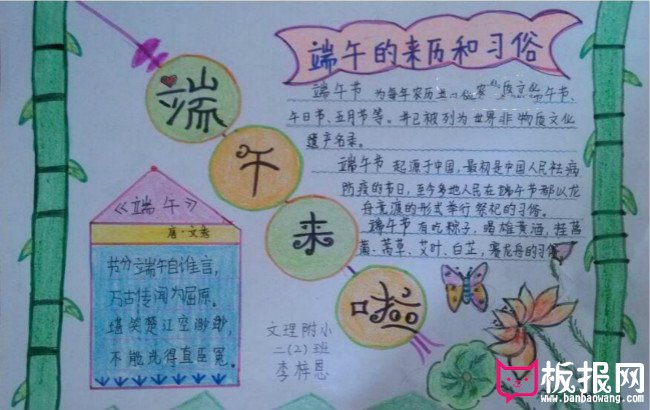 端午的来历和习俗
端午来啦
端午节 为每年农历 午节、
午日节、五月节等。并已被列为世界非物质文化
遗产名录。
端午节 起源于中国，最初是中国人民祛病
防疫的节日，至今多地人民在端午节都以龙
舟竞渡的形式举行祭祀的习俗。
端午节 有吃粽子，喝雄黄酒，挂菖
蒲、蒿草、艾叶、白芷，赛龙舟的习俗
《端午》
唐·文秀
节分端午自谁言，
万古传闻为屈原。
堪笑楚江空渺渺，
不能洗得直臣冤。
文理附小
二（2）班
李梓恩
板报网
www.banbaowang.com